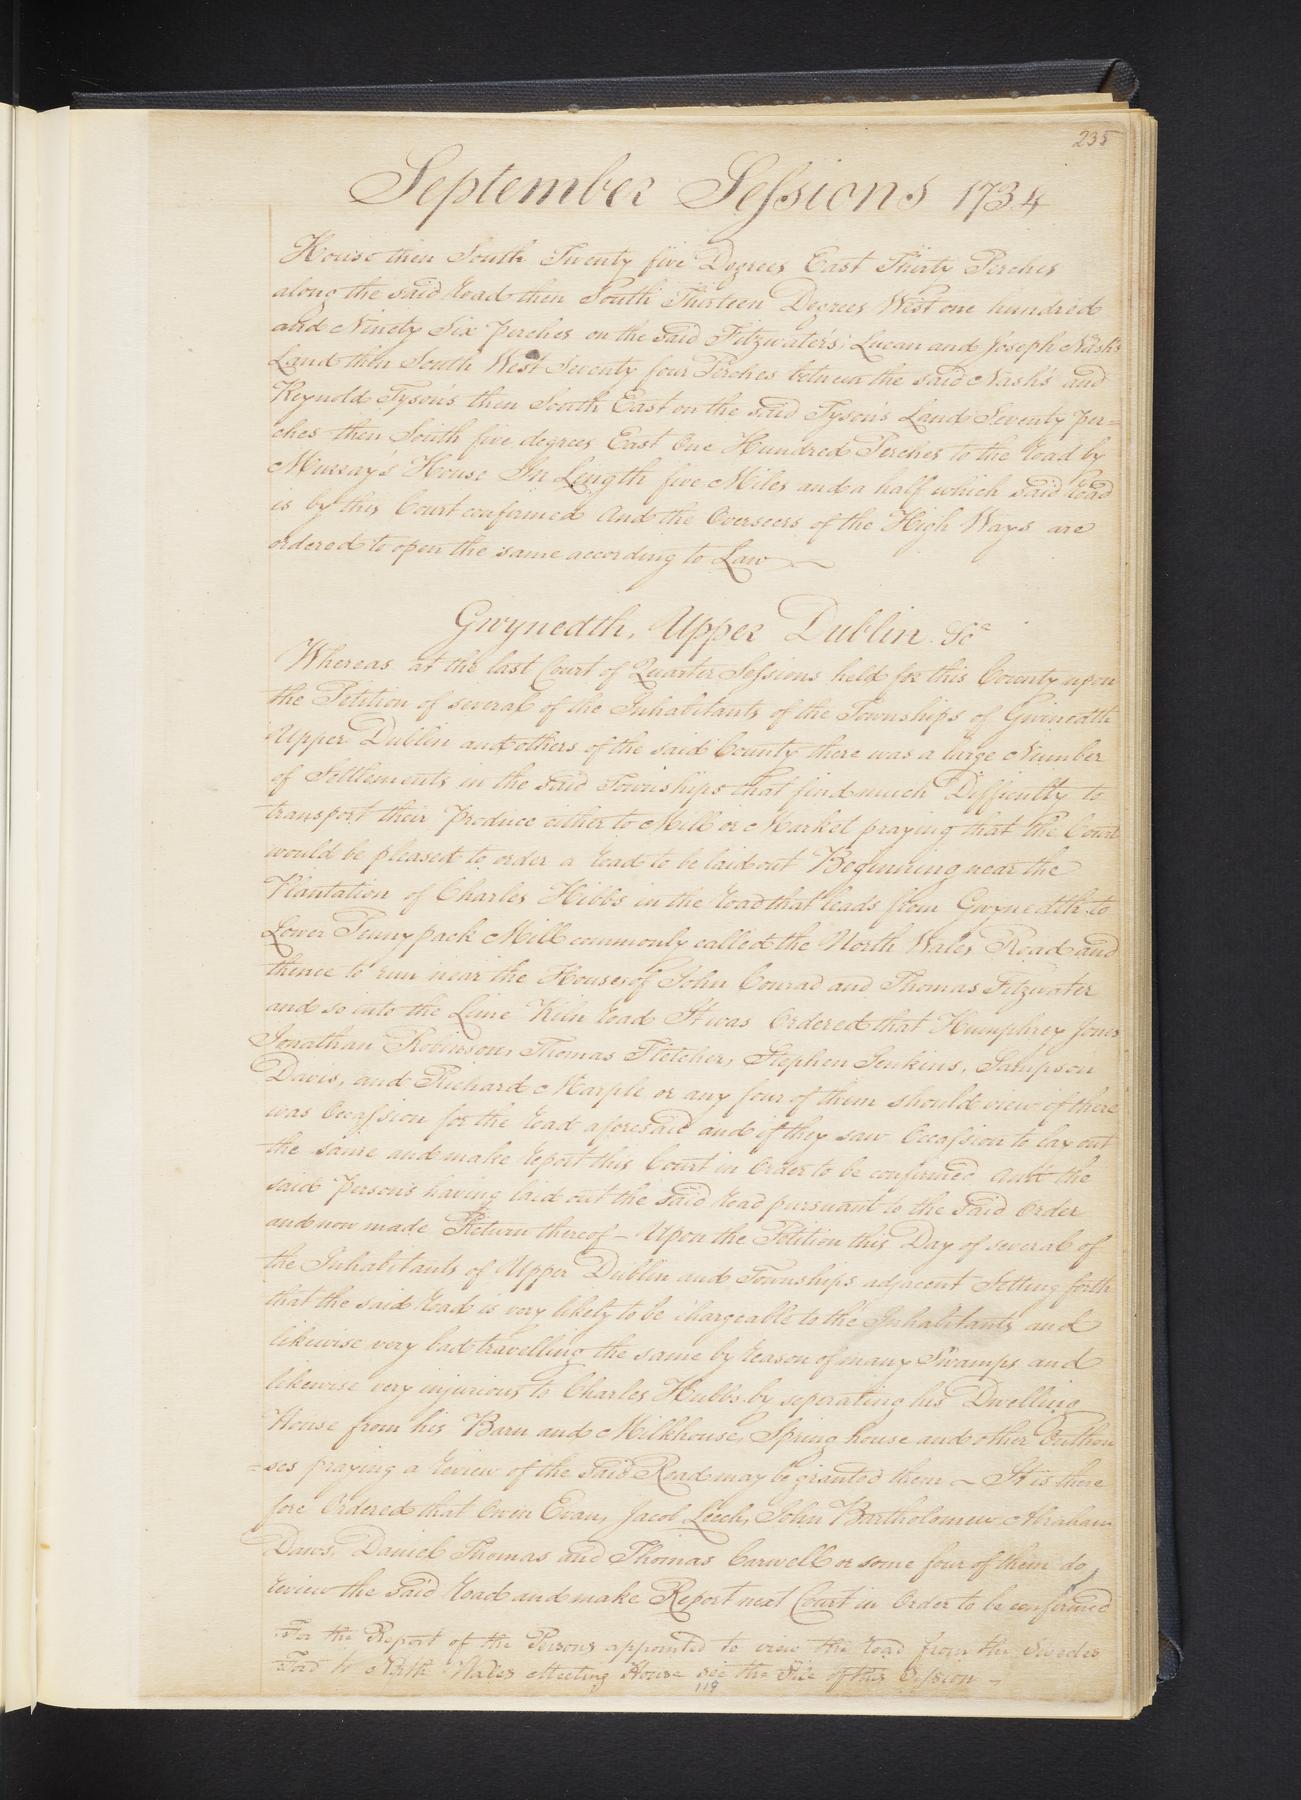 235
September Sessions 1734
House then South Twenty five Degrees East Thirty Perches
along the said road then South Thirteen Degrees West one hundred
and Ninety Six perches on the said Fitzwater's, Lucan and Joseph Nash's
Land then South West Seventy four Perches between the said Nash's and
Reynold Tyson's then South East on the said Tyson's Land Seventy per=
ches then South five degrees East One Hundred Perches to the road by
Murray's House In Length five Miles and a half which said road
is by this Court confirmed And the Overseers of the High Ways are
ordered to open the same according to Law
Gwynedth, Upper Dublin &ca
Whereas at the last Court of Quarter Sessions held for this County upon
the Petition of several of the Inhabitants of the Townships of Gwinedth
Upper Dublin and others of the said County there was a large Number
of Settlements in the said Townships that find much Difficulty to
transport their produce either to Mill or Market praying that the Court
would be pleased to order a road to be laid out Beginning near the
Plantation of Charles Hibbs in the road that leads from Gwynedth to
Lower Pennypack Mill commonly called the North Wales Road and
thence to run near the Houses of John Conrad and Thomas Fitzwater
and so into the Lime Kiln road It was Ordered that Humphrey Jones
Jonathan Robinson, Thomas Fletcher, Stephen Jenkins, Sampson
Davis, and Richard Marple or any four of them should view if there
was Occassion for the road aforesaid and if they saw Occassion to lay out
the same and make report this Court in Order to be confirmed And the
said persons having laid out the said road pursuant to the said Order
and now made Return thereof – Upon the Petition this Day of several of
the Inhabitants of Upper Dublin and Townships adjacent Setting forth
that the said road is very likely to be chargeable to the Inhabitants and
likewise very bad travelling the same by reason of many Swamps and
likewise very injurious to Charles Hubbs by seperating his Dwelling
House from his Barn and Milkhouse, Spring house and other Outhou
=ses praying a review of the said Road may be granted them – It is there
fore Ordered that Owen Evan, Jacob Leech, John Bartholomew Abraham
Daws, Daniel Thomas and Thomas Carwell or some four of them do
review the said road and make Report next Court in Order to be confirmed
For the Report of the Persons appointed to view the road from the Swedes
Ford to North Wales Meeting House see the File of this Session –
119